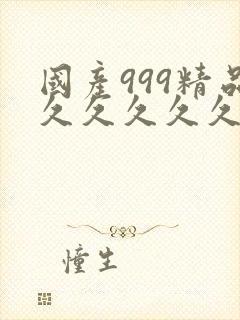 國産999精品
久久久久久
憧生